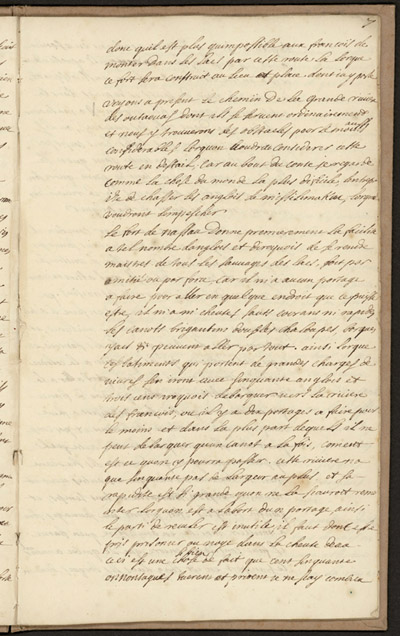 7
donc quil est plus quimpossible aux francois de
monter dans les lacs par cette route la lorque
ce fort sera construit au lieu et place dont iay parle
voyons a present le chemin de la grande riviere
des outaouas dont ils se servent ordinairement
et nous y trouverons des obstacles pour le moins aussy
considerables lorquon voudra considerer cette
route en destail, Car au bout de conte je regarde
comme la chose du monde la plus dificile
de chasser les anglois de missilimakinac, lorque
voudront lempescher
Le fort de nassau donne premierement la facilité
a tel nombre danglois et diroquois de se rendre
maistres de tous les sauvages des lacs, soit par
amitié ou par force car il ni a aucun portage
a faire pour aller en quelque endroit que ce puisse
estre, il ni a ni cheutes sauts courans ni rapides
les canots brigantins doubles chaloupes barques
peuvent aller par tout, ainsi lorque
ces batiments qui portent de grandes charges de
vivres avec cinquante anglois et
huit cent iroquois debarquer vers la riviere
des francois, ou il y a des portages a faire pour
le moins et dans la plus part desquels il ne
peut debarquer quun canot a la fois, coment
est ce quon y pourra passer, cette riviere na
que cinquante pas de largeur au plus, et sa
rapidité est si grande quon ne la scauroit
lorquon est a labord dun portage ainsi
le parti de reculer est inutile, il faut donc estre
pris prisonier ou noyé dans la cheute deau
ceci est une chose de fait que cent cinquante
onnontagues tuerent et prirent ie ne scay combien